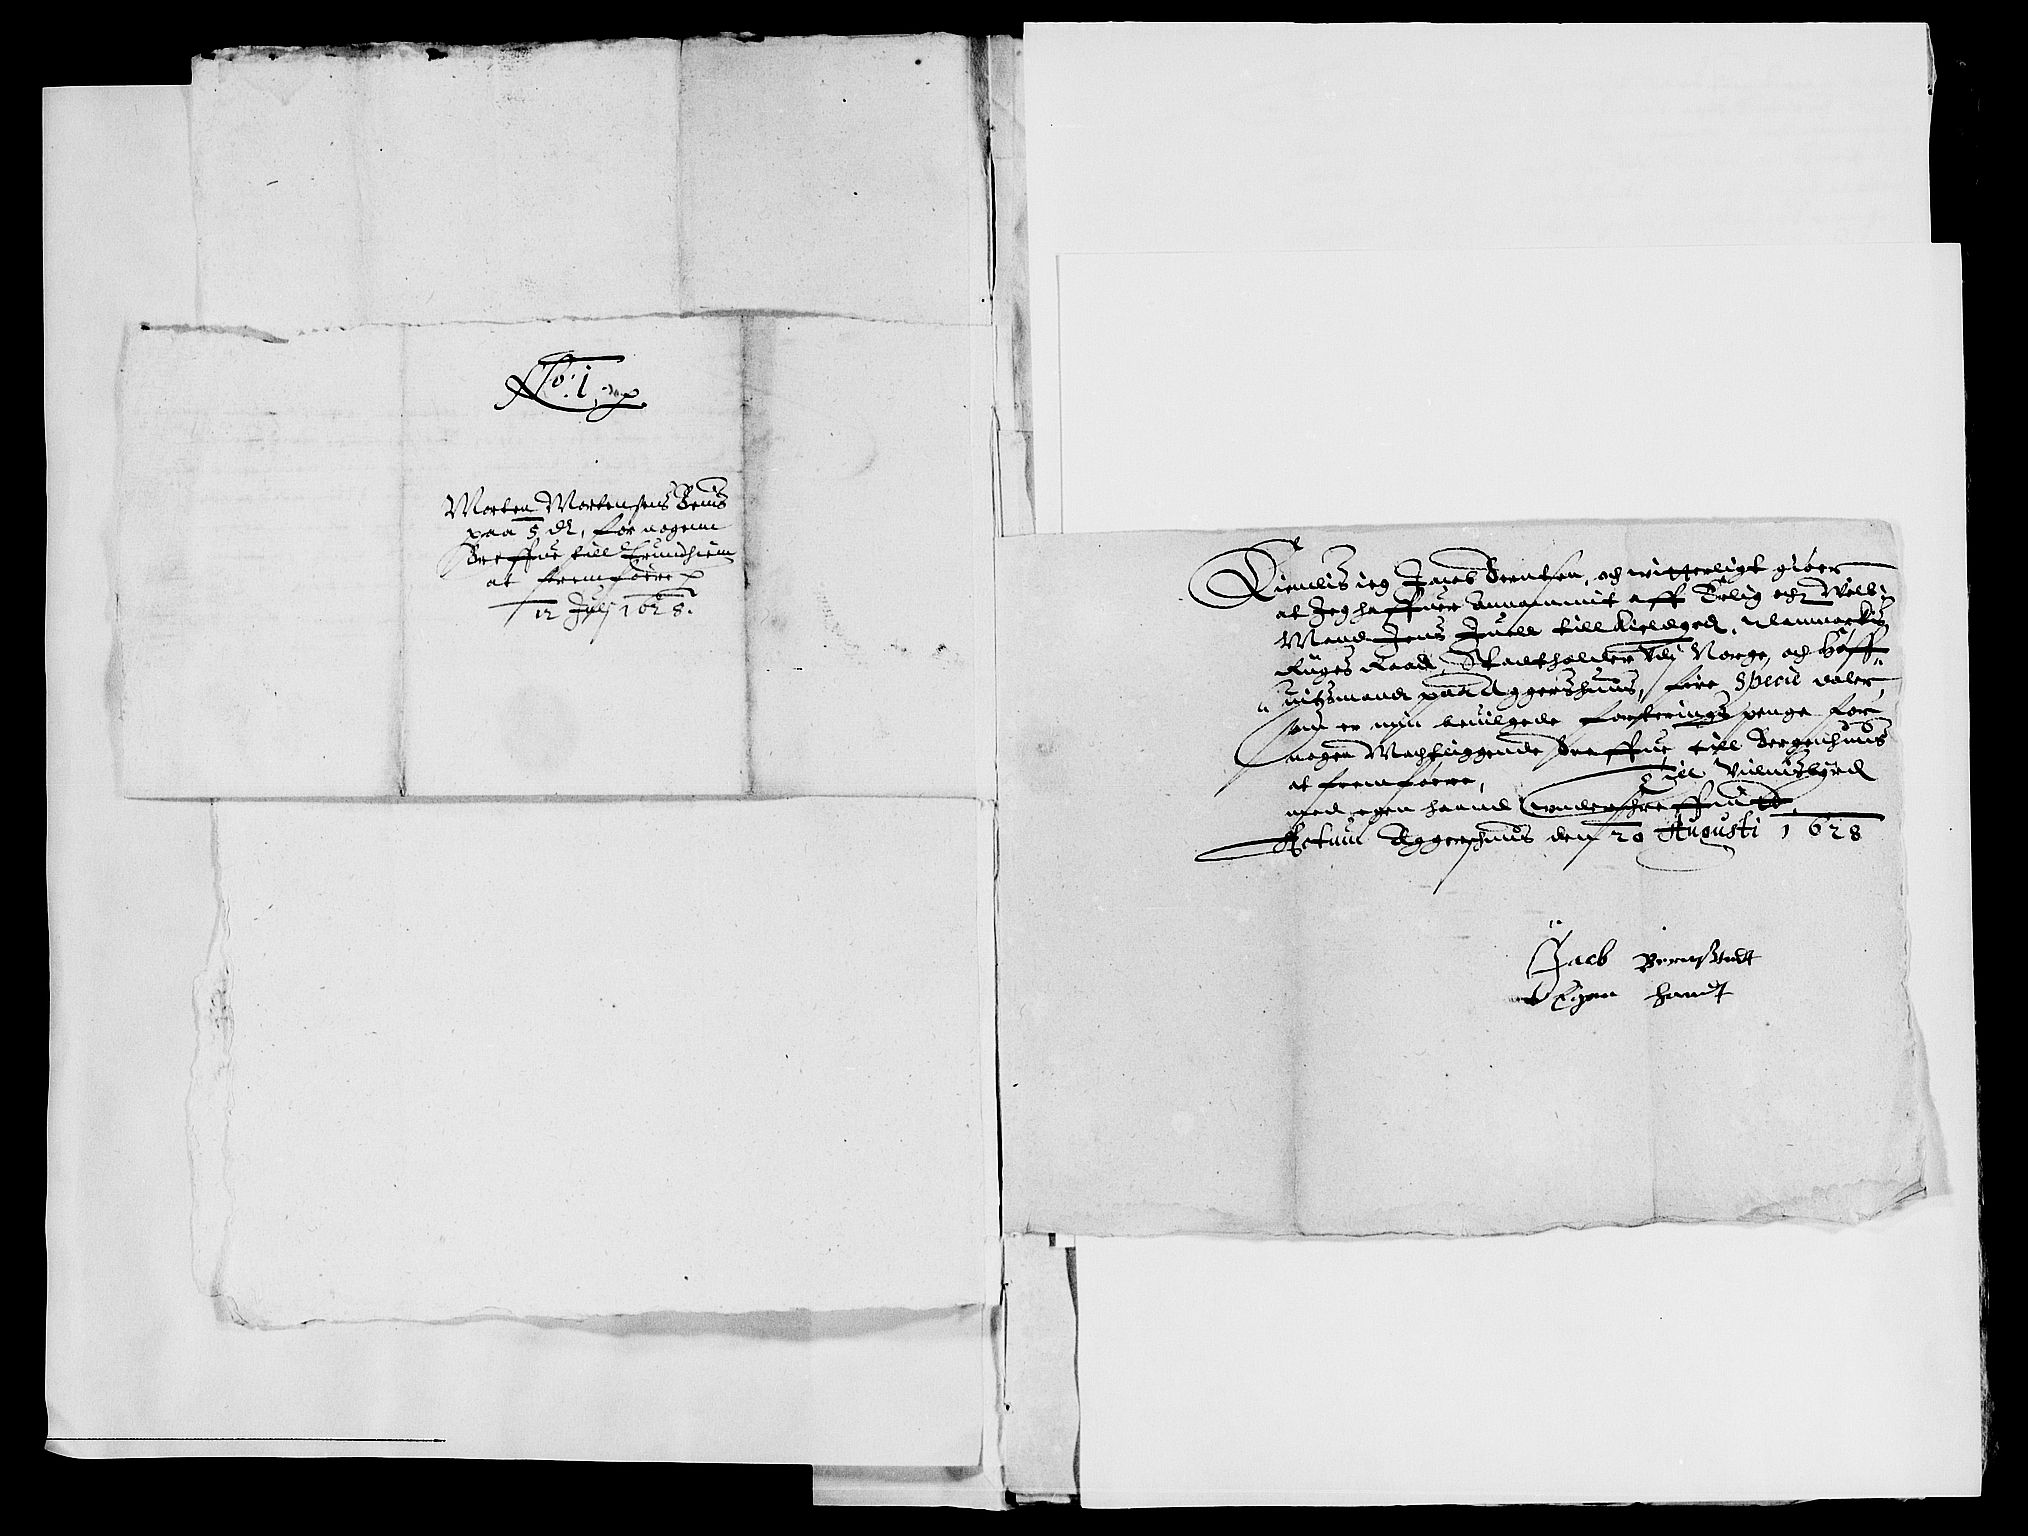 No: 1.
Morten Mortensens Beuis
paa 5 dr, for nogenn
Breffue till Trundhiem
at fremføere
12 Julj 1628.
Kiendis ieg Jacob Berntsen, och witterligt giøer
at Jeg haffuer annammit aff Erlig och Welb:
Mand Jens Juell till Kieldgrd, Danmarckis
Riiges Raad, Stadtholder vdj Norge, och Høff-
uitzmand paa Aggershuus, fire Specie daler,
som er min beuilgede forterings penge for
nogen Machtliggende Breffue till Bergenhuus
at fremføere, Till Vidnisbyrd
med egen haand vnderschreffuitt.
Actum Aggershuus den 20 Augusti 1628
Jacob Berntstedt
Egen handt